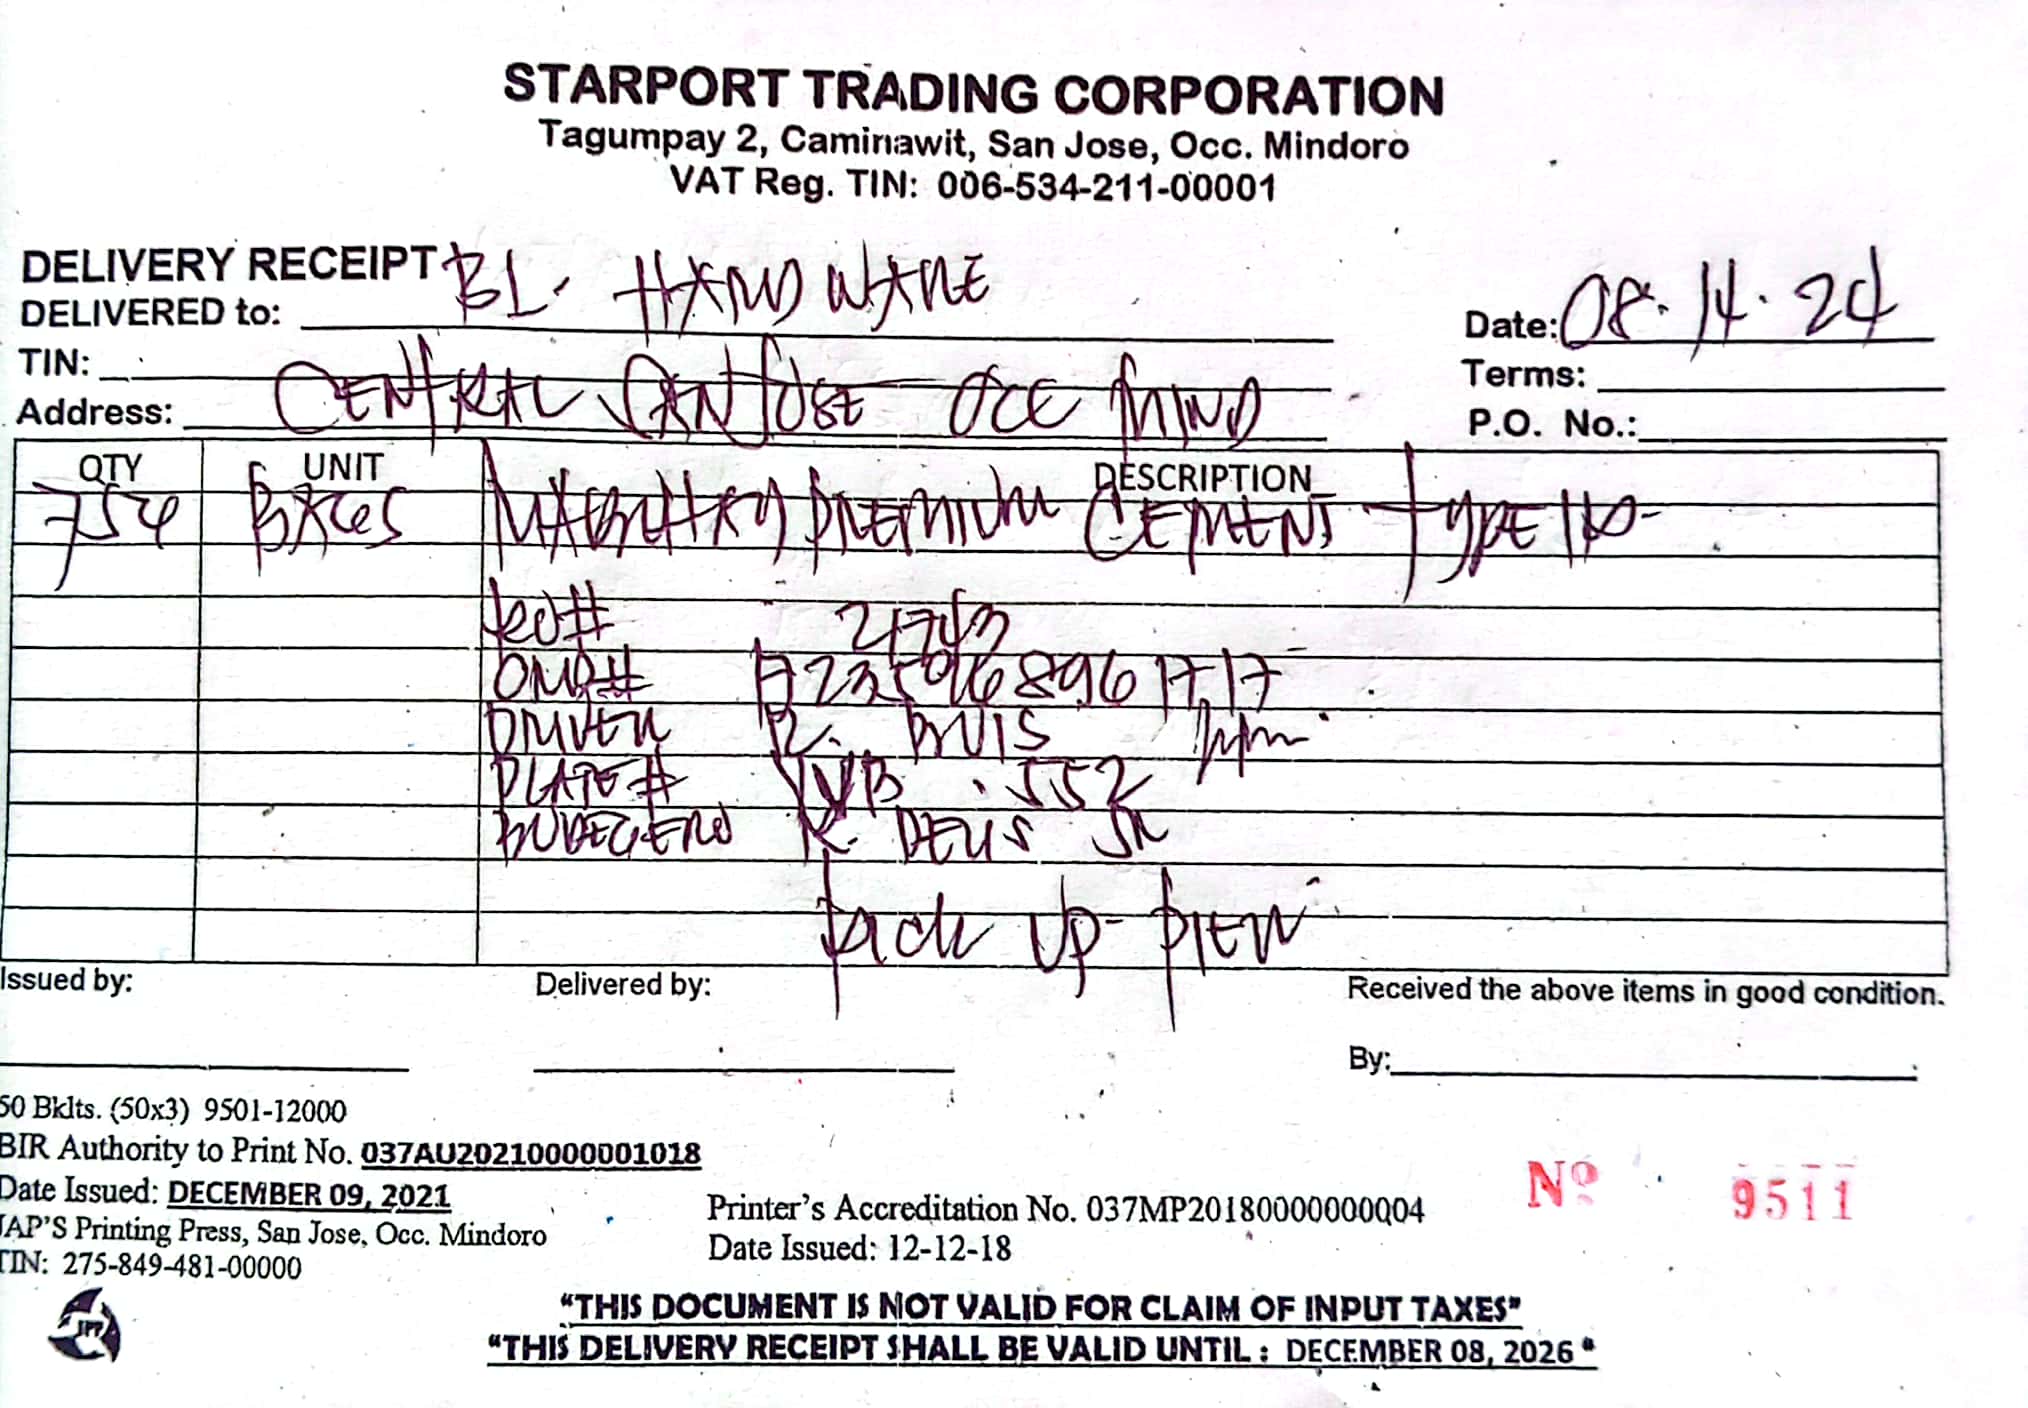 STARPORT TRADING CORPORATION
Tagumpay 2, Caminawit, San Jose, Occ. Mindoro
VAT Reg. TIN: 006-534-211-00001
DELIVERY RECEIPT
DELIVERED to: BL. HARDWARE
Date: 08.14.24
TIN:
Terms:
Address: CENTRAL SAN JOSE OCC MIND
P.O. No.:
QTY UNIT DESCRIPTION
BAGS PREMIUM CEMENT TYPE
21743
DRIVER R.
PLATE # 552
BODEGERO R. DEUS JR
Pick up pier
Issued by:
Delivered by:
Received the above items in good condition.
By:
50 Bklts. (50x3) 9501-12000
BIR Authority to Print No. 037AU20210000001018
Date Issued: DECEMBER 09, 2021
JAP'S Printing Press, San Jose, Occ. Mindoro
TIN: 275-849-481-00000
Printer's Accreditation No. 037MP20180000000004
Date Issued: 12-12-18
Nº 9511
"THIS DOCUMENT IS NOT VALID FOR CLAIM OF INPUT TAXES"
"THIS DELIVERY RECEIPT SHALL BE VALID UNTIL : DECEMBER 08, 2026"